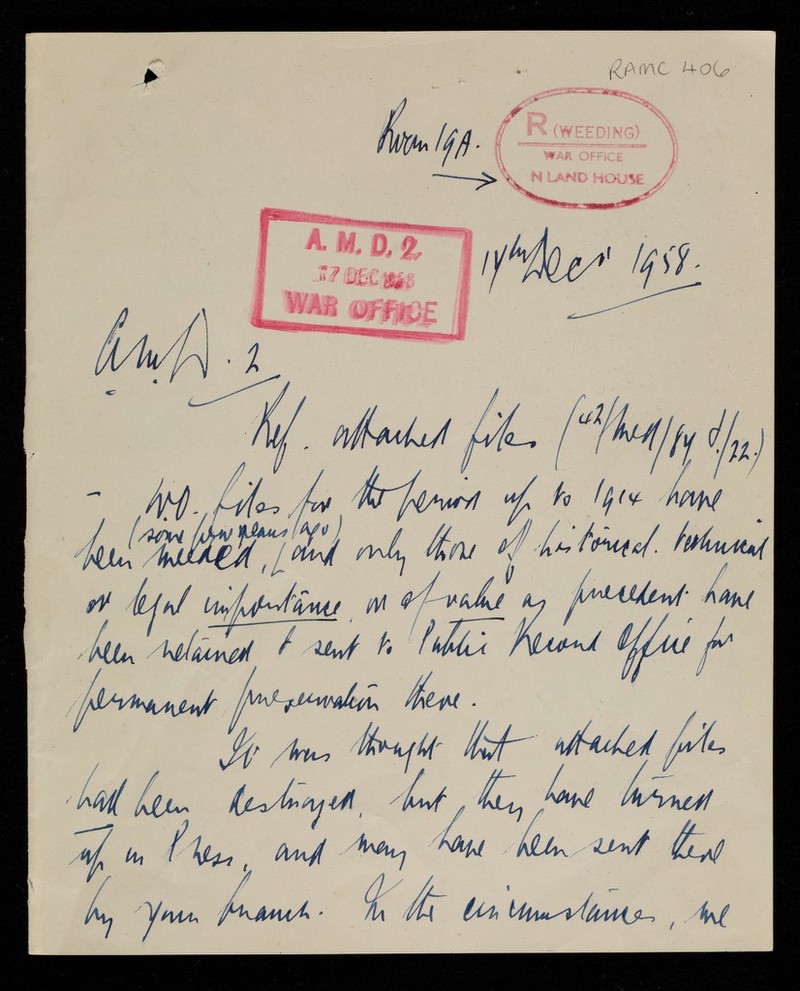 RAMC 406
Room 19A.
R (WEEDING)
WAR OFFICE
N LAND HOUSE
A. M. D. 2.
17 DEC 1958
WAR OFFICE
17th Decr 1958.
A.M.D. 2
Ref. attached files (42/Med/84
- W.O. files for the period up to 1914 have
(some few years ago)
been weeded, and only those of historical. technical
or legal importance, or of value as precedent have
been retained & sent to Public Record Office for
permanent preservation there.
It was thought that attached files
had been destroyed, but they have turned
up in Press, and may have been sent there
by your branch. In the circumstances, we